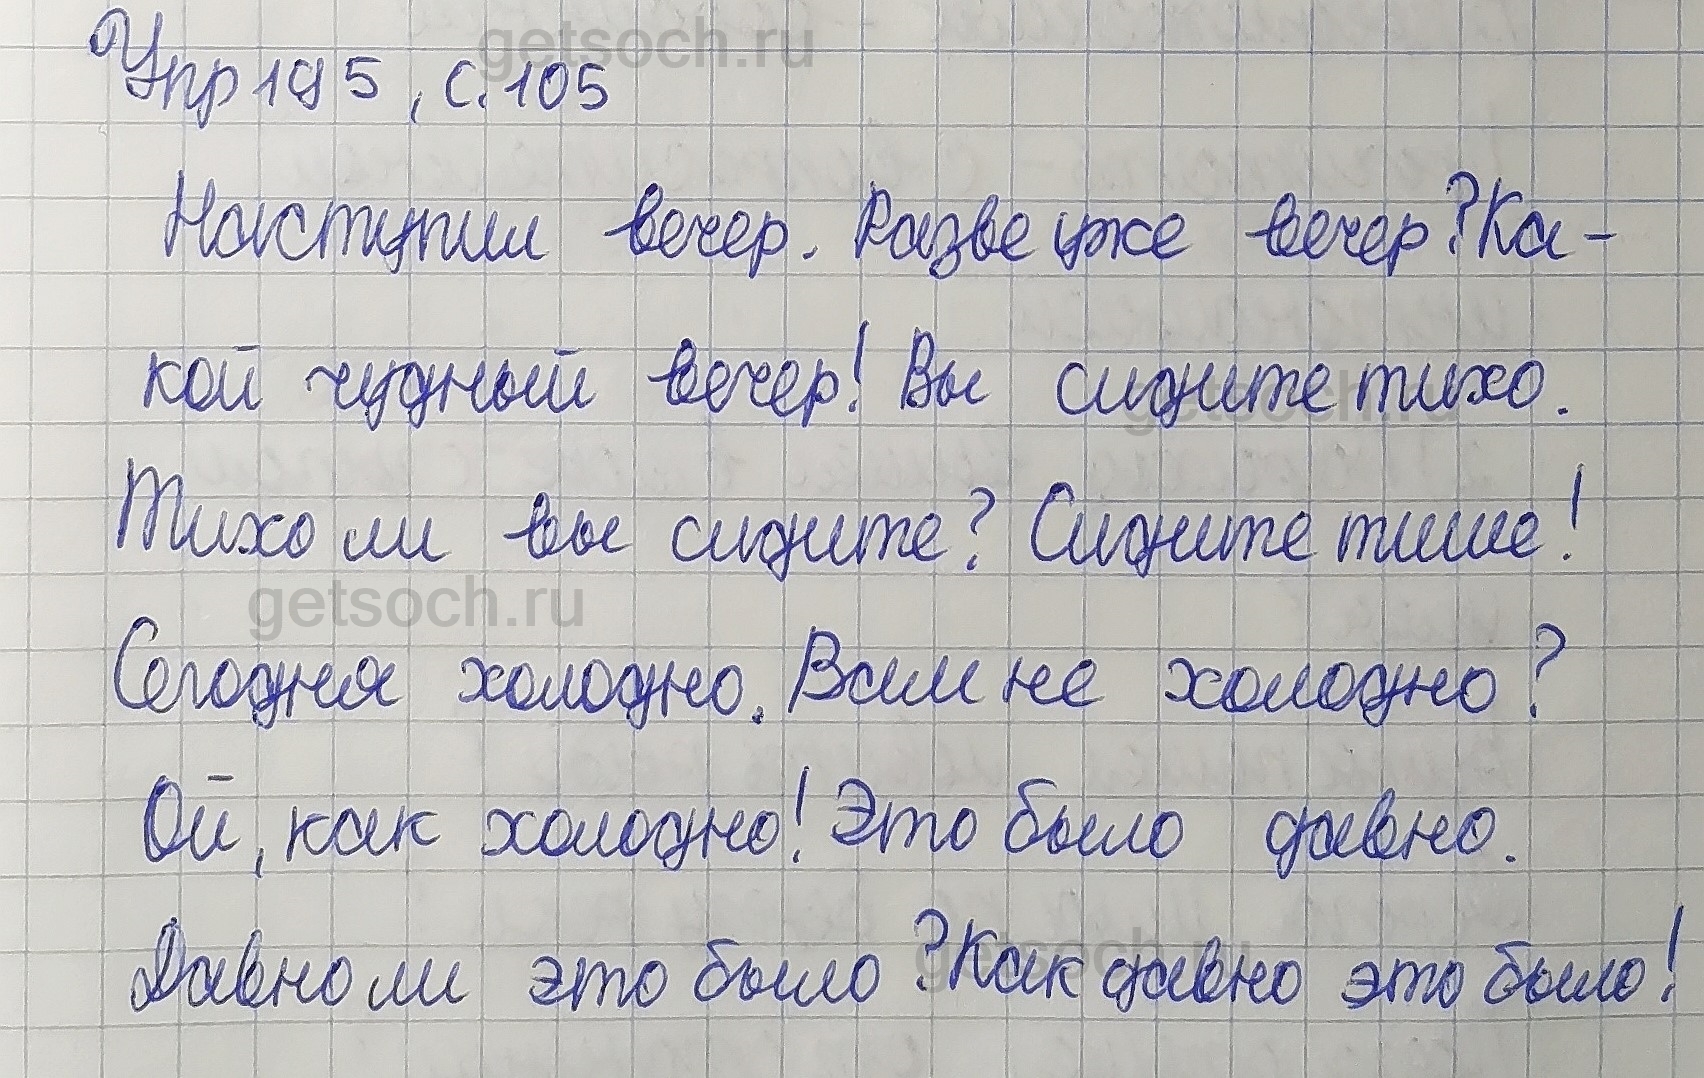 getsoch.ru
Упр 195, с. 105
Наступил вечер. Разве уже вечер? Ка-
кой чудный вечер! Вы сидите тихо.
getsoch.ru
Тихо ли вы сидите? Сидите тише!
getsoch.ru
Сегодня холодно. Вам не холодно?
Ой, как холодно! Это было давно.
getsoch.ru
Давно ли это было? Как давно это было!